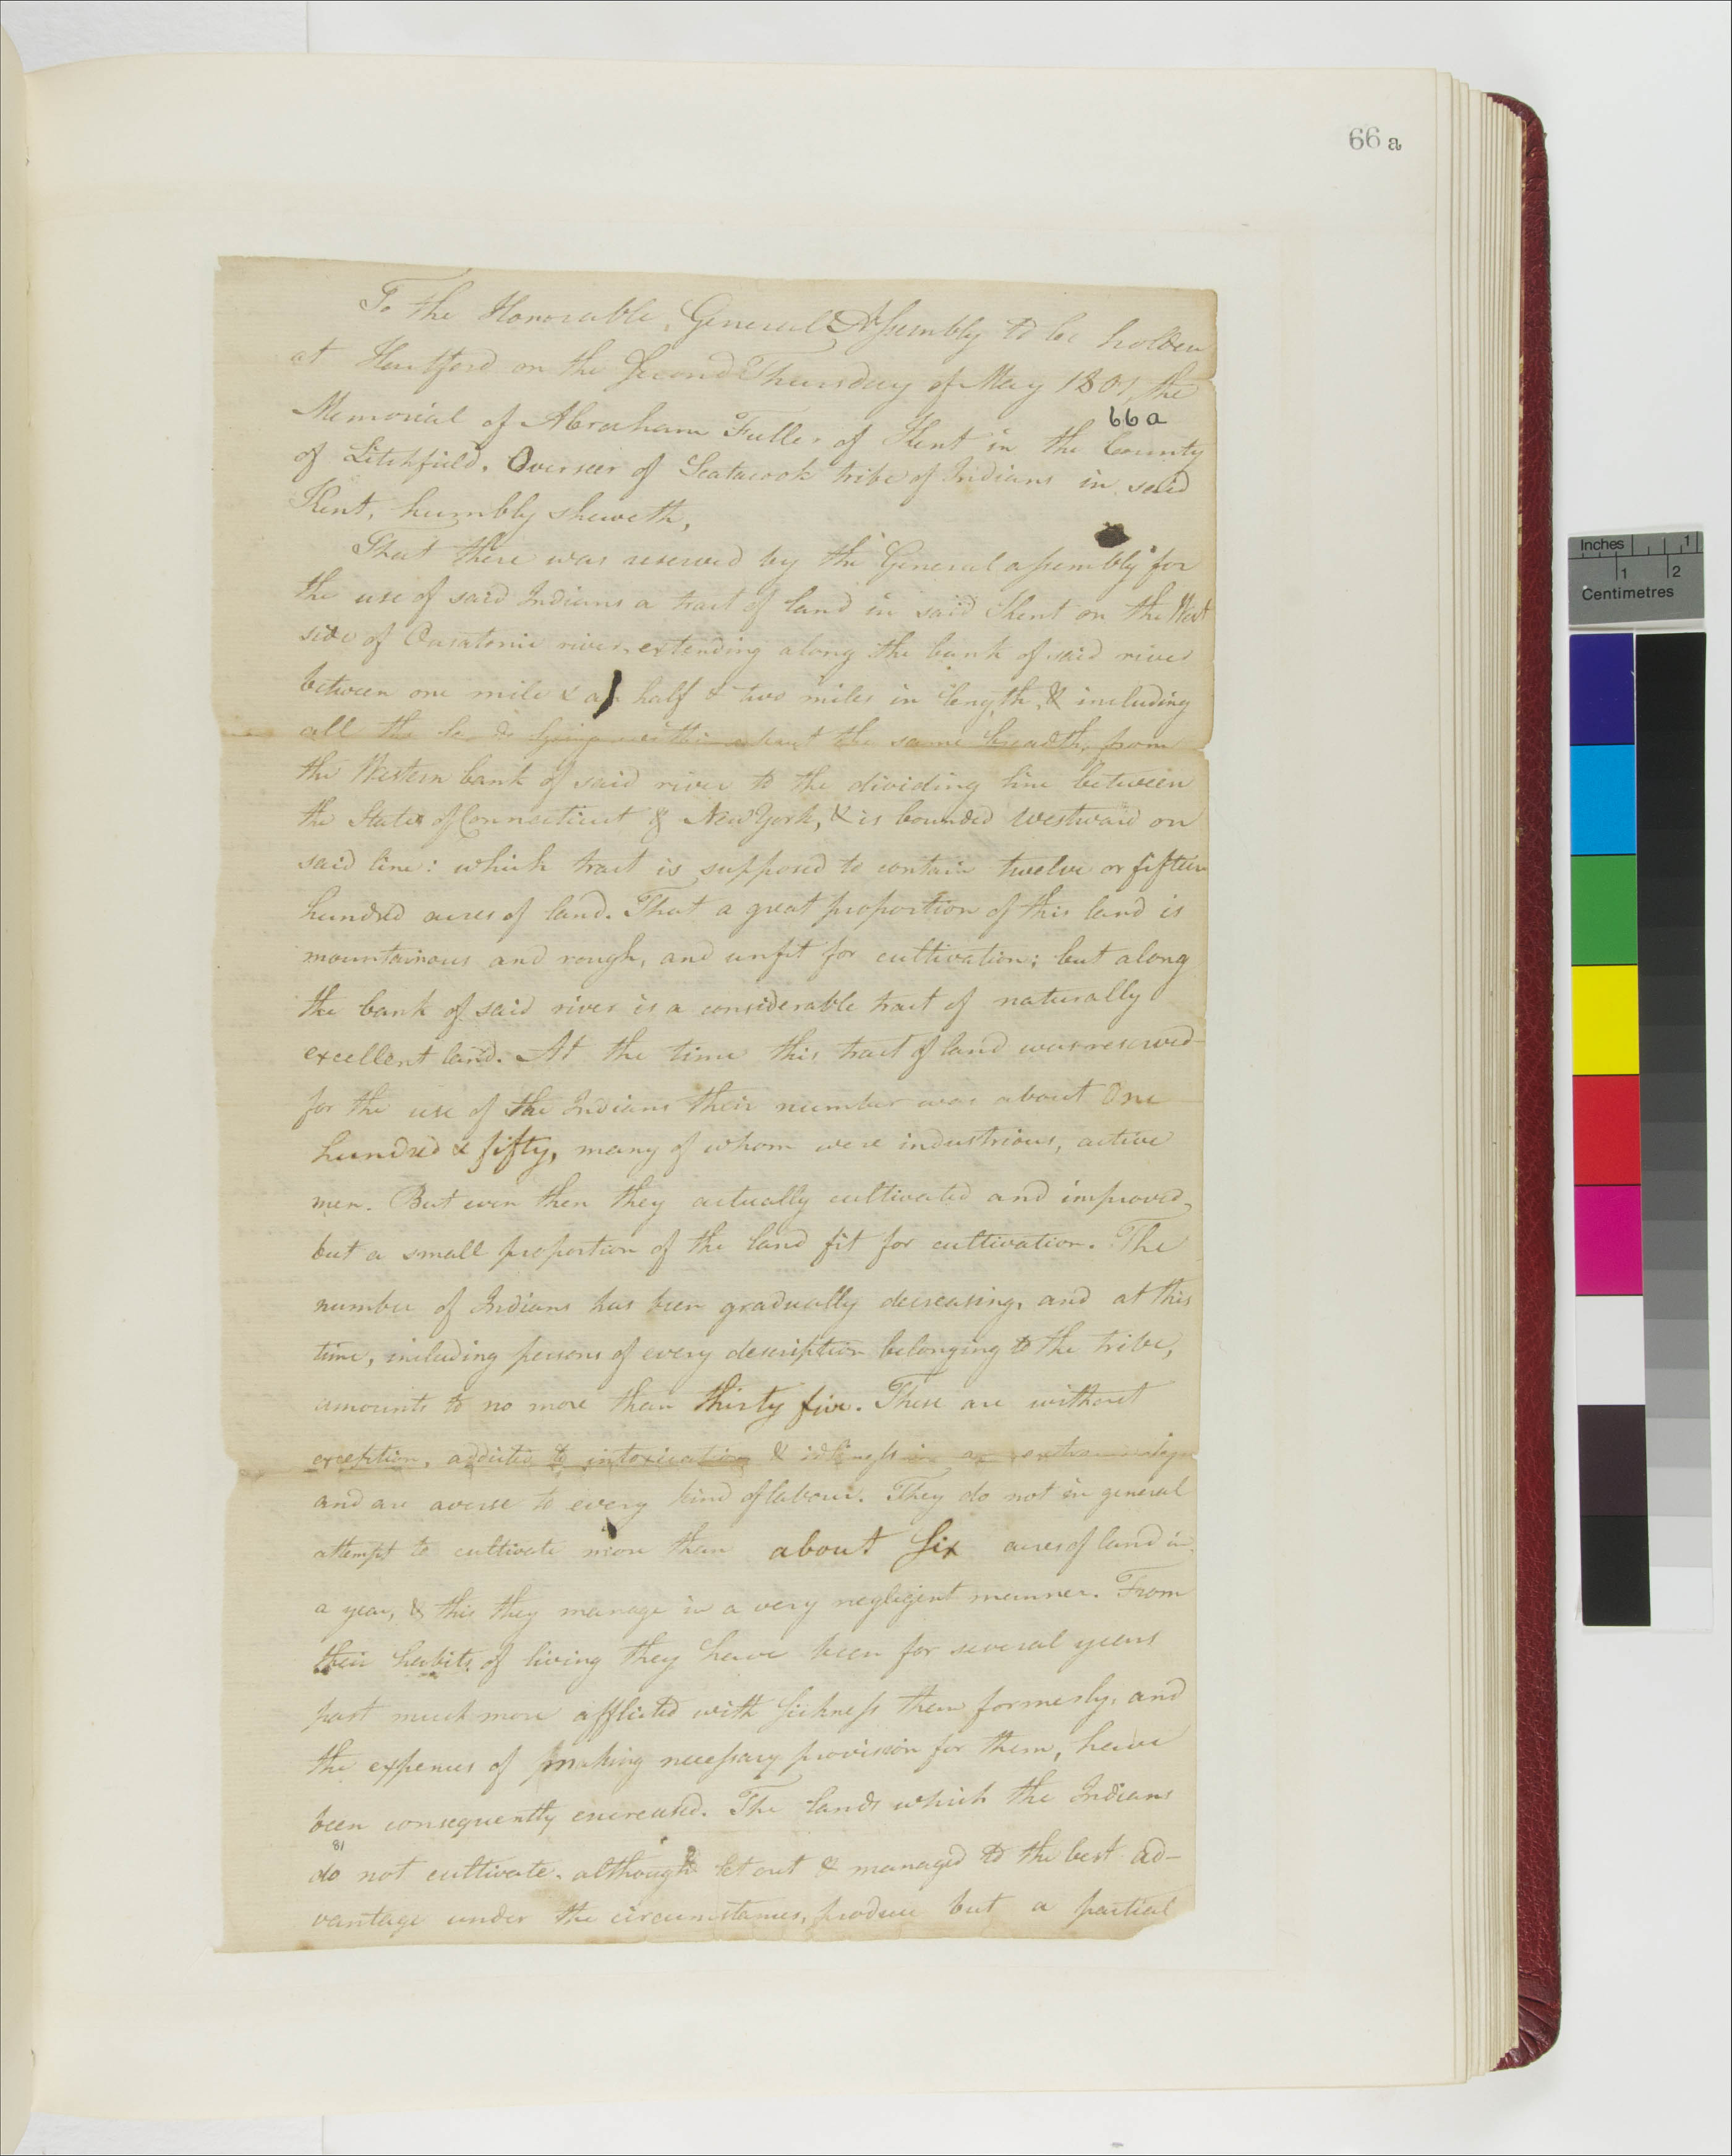 66 a
To the Honorable General Assembly to be holden
at Hartford on the Second Thursday of May 1801, the
66a
Memorial of Abraham Fuller of Kent in the County
of Litchfield, Overseer of Scatacook tribe of Indians in said
Kent, humbly sheweth,
That there was reserved by the General assembly for
the use of said Indians a tract of land in said Kent on the West
side of Ousatonic river, extending along the bank of said river
between one mile & a half & two miles in length, & including
all the lying within the same breadth, from
the Western bank of said river to the dividing line between
the States of Connecticut & New York, & is bounded Westward on
said line: which tract is supposed to contain twelve or fifteen
hundred acres of land. That a great proportion of this land is
mountainous and rough, and unfit for cultivation; but along
the bank of said river is a considerable tract of naturally
excellent land. At the time this tract of land was reserved
for the use of the Indians their number was about One
hundred & fifty, many of whom were industrious, active
men. But even then they actually cultivated and improved
but a small proportion of the land fit for cultivation. The
number of Indians has been gradually decreasing, and at this
time, including persons of every description belonging to the tribe,
amounts to no more than thirty five. These are without
exception, addicted to intoxication & idleness in an
and are averse to every kind of labour. They do not in general
attempt to cultivate more than about Six acres of land in
a year, & this they manage in a very negligent manner. From
their habits of living they have been for several years
past much more afflicted with Sickness than formerly, and
the expences of making necessary provision for them, have
been consequently encreased. The lands which the Indians
81
do not cultivate, although let out & managed to the best ad-
vantage under the circumstances, produce but a partial
Inches 1
1 2
Centimetres